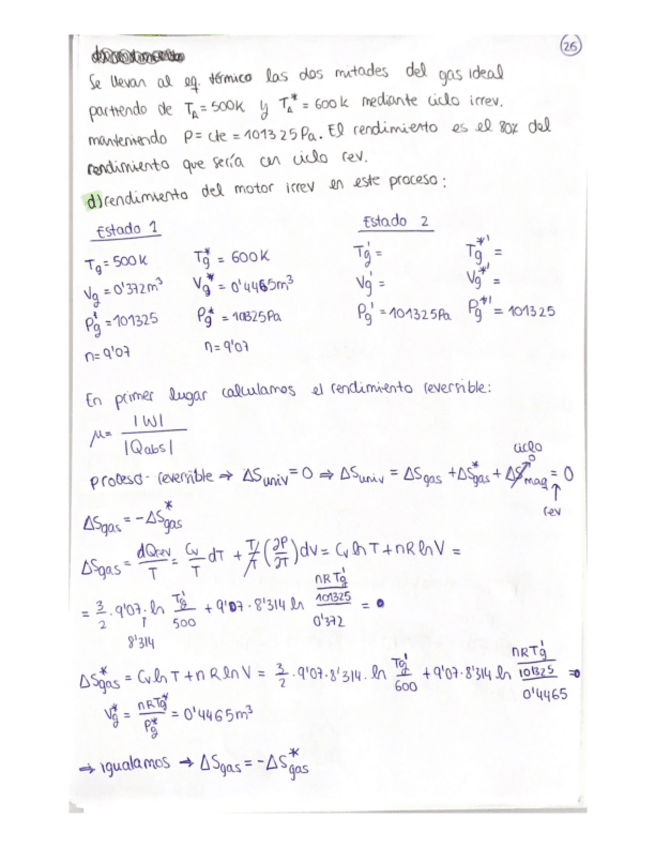 26
Se llevan al eq. térmico las dos mitades del gas ideal
partiendo de T_A = 500K y T_A^* = 600K mediante ciclo irrev.
manteniendo P = cte = 101325 Pa. El rendimiento es el 80% del
rendimiento que sería un ciclo rev.
d) rendimiento del motor irrev en este proceso:
Estado 1
Estado 2
T_g = 500K T_g^* = 600K T_g' = T_g^*' =
V_g = 0'372m³ V_g^* = 0'4465m³ V_g' = V_g^*' =
P_g = 101325 P_g^* = 101325Pa P_g' = 101325Pa P_g^*' = 101325
n = 9'07 n = 9'07
En primer lugar calculamos el rendimiento reversible:
μ = |W| / |Qabs|
ciclo
proceso reversible ⇒ ΔSuniv = 0 ⇒ ΔSuniv = ΔSgas + ΔS*gas + ΔSmaq = 0
rev
ΔSgas = -ΔS*gas
ΔSgas = dQrev/T = Cv/T dT + T/T (∂P/∂T) dV = Cv ln T + nR ln V =
= 3/2 · 9'07 · ln T_g'/500 + 9'07 · 8'314 ln (nRT_g'/101325)/0'372 = 0
8'314
ΔS*gas = Cv ln T + nR ln V = 3/2 · 9'07 · 8'314 · ln T_g'/600 + 9'07 · 8'314 ln (nRT_g'/101325)/0'4465 ⇒
V_g^* = nRT_g^*/P_g^* = 0'4465m³
⇒ igualamos → ΔSgas = -ΔS*gas